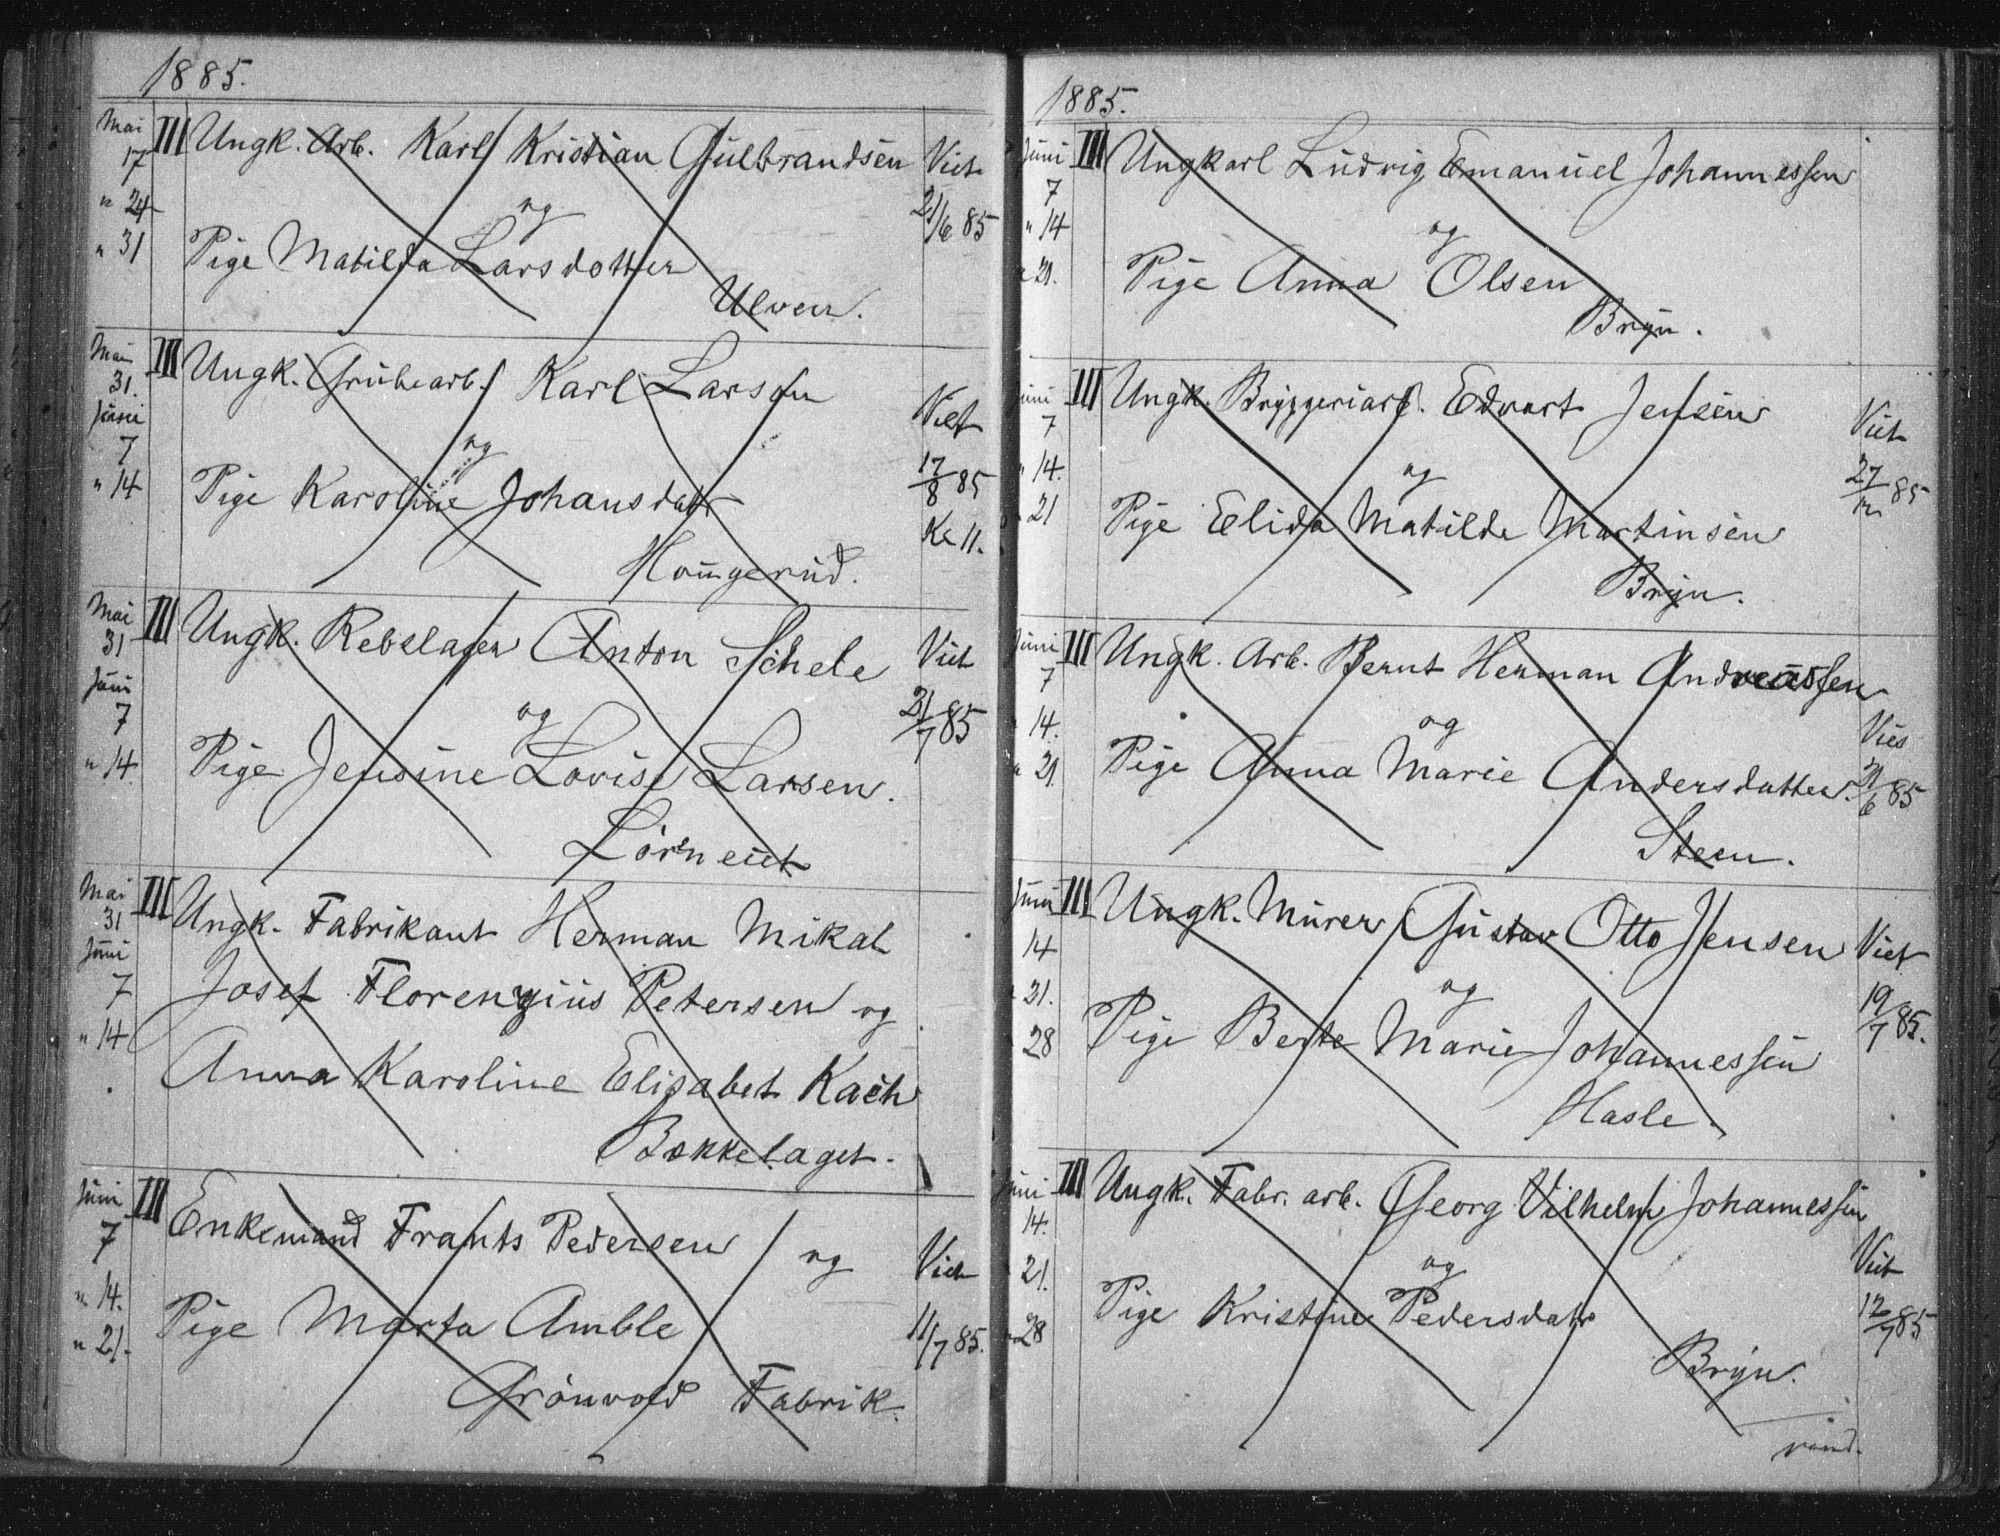 1885.
Mai III Ungk. Arb. Karl Kristian Gulbrandsen Viet
17
" 24 og 21/6 85
" 31 Pige Matilda Larsdotter
Ulven.
Mai III Ungk. Grubearb. Karl Larson
31.
Juni Viet
7 og
" 14 Pige Karoline Johansdatr 17/8 85
Kl 11.
Haugerud.
Mai III Ungk. Rebslager Anton Schele Viet
31
Juni
7 og 21/7 85
" 14. Pige Jensine Lovise Larsen.
Løreneut
Mai III Ungk. Fabrikant Herman Mikal
31
Juni
7 Josef Florenzius Petersen og
" 14 Anna Karoline Elisabet Kach
Bækkelaget.
Juni III Enkemand Frants Pedersen og Viet
7
" 14. Pige Marta Amble 11/7 85.
" 21.
Grönvold Fabrik.
1885.
Juni III Ungkarl Ludvig Emanuel Johannessen
7
" 14 og
" 21. Pige Anna Olsen
Bryn.
Juni III Ungk. Bryggeriarb. Edvart Jensen Viet
7
" 14. og 27/12 85
" 21 Pige Elida Matilde Martinsen
Bryn.
Juni III Ungk. Arb. Bernt Herman Andreassen
7
" 14. og Vies
" 21. Pige Anna Marie Andersdatter. 21/6 85
Steen.
Juni III Ungk. Murer Gustav Otto Jensen Viet
14
" 21. og 19/7 85.
28 Pige Berte Marie Johannessen
Hasle.
Juni III Ungk. Fabr. arb. Georg Vilhelm Johannessen
14. Viet
21. og
" 28 Pige Kristine Pedersdatr 12/7 85
Bryn.